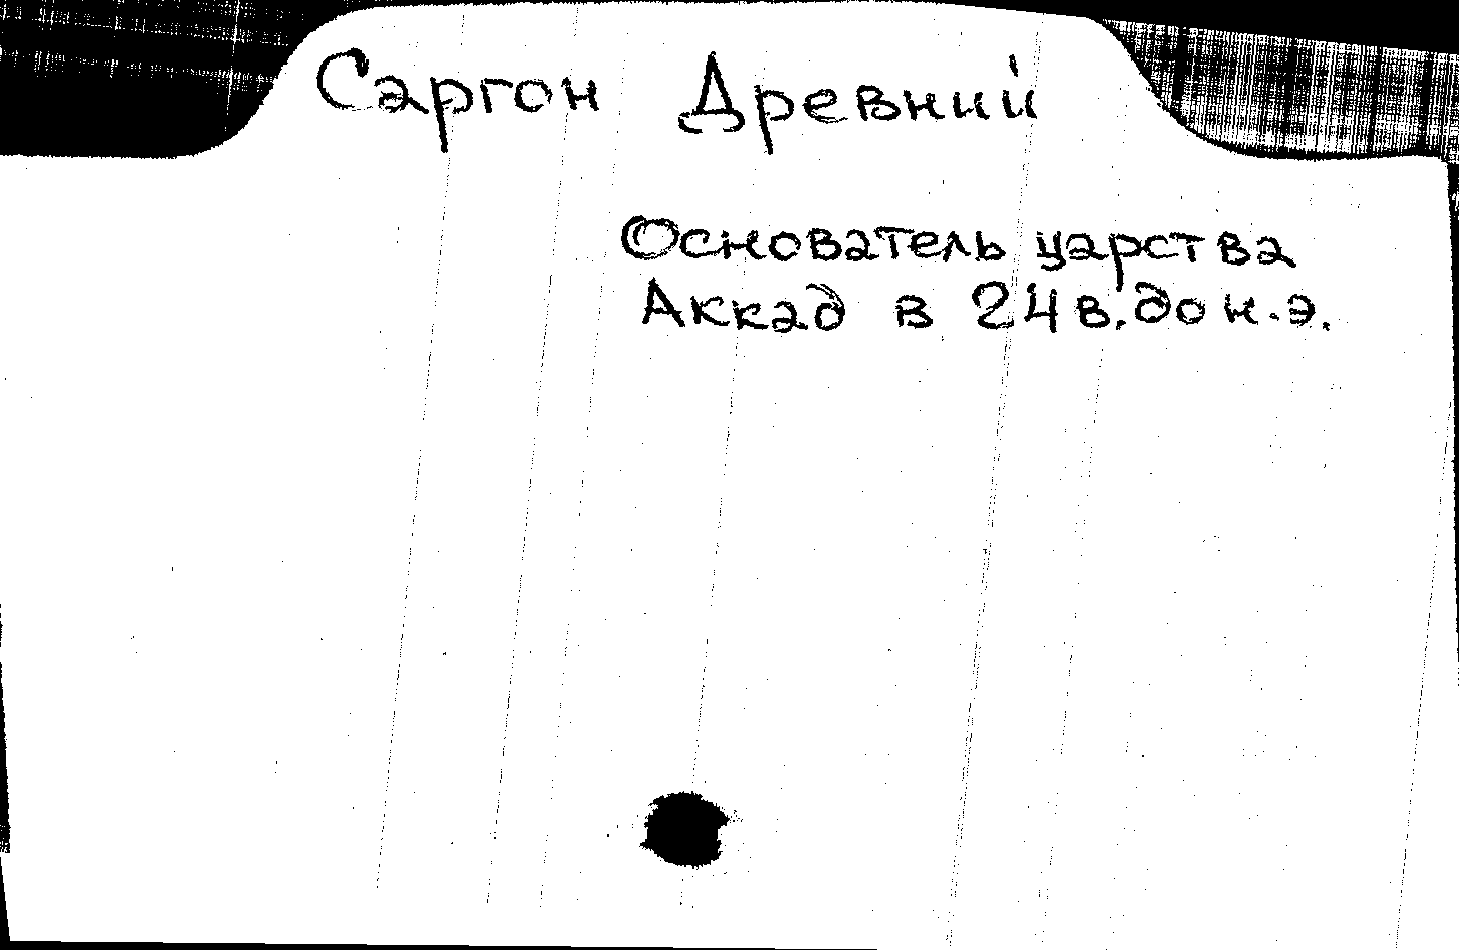 Саргон Древний
Основатель царства
Аккад в 24 в. до н.э.